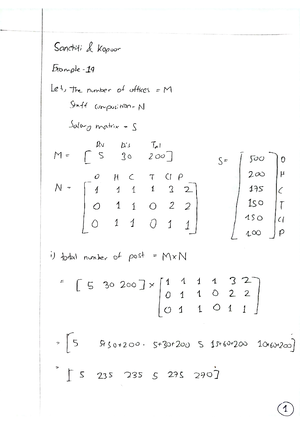 Sanchiti & Kapoor
Example-19
Let, The number of offices = M
Staff composition = N
Salary matrix = S
Div Dis Tal
M = [ 5 30 200 ]
O H C T Cl P
N = [ 1 1 1 1 3 2
0 1 1 0 2 2
0 1 1 0 1 1 ]
S = [ 500 O
200 H
175 C
150 T
150 Cl
100 P ]
i) total number of post = M×N
= [ 5 30 200 ] × [ 1 1 1 1 3 2
0 1 1 0 2 2
0 1 1 0 1 1 ]
= [ 5 5+30+200 5+30+200 5 15+60+200 10+60+200 ]
= [ 5 235 235 5 275 270 ]
1